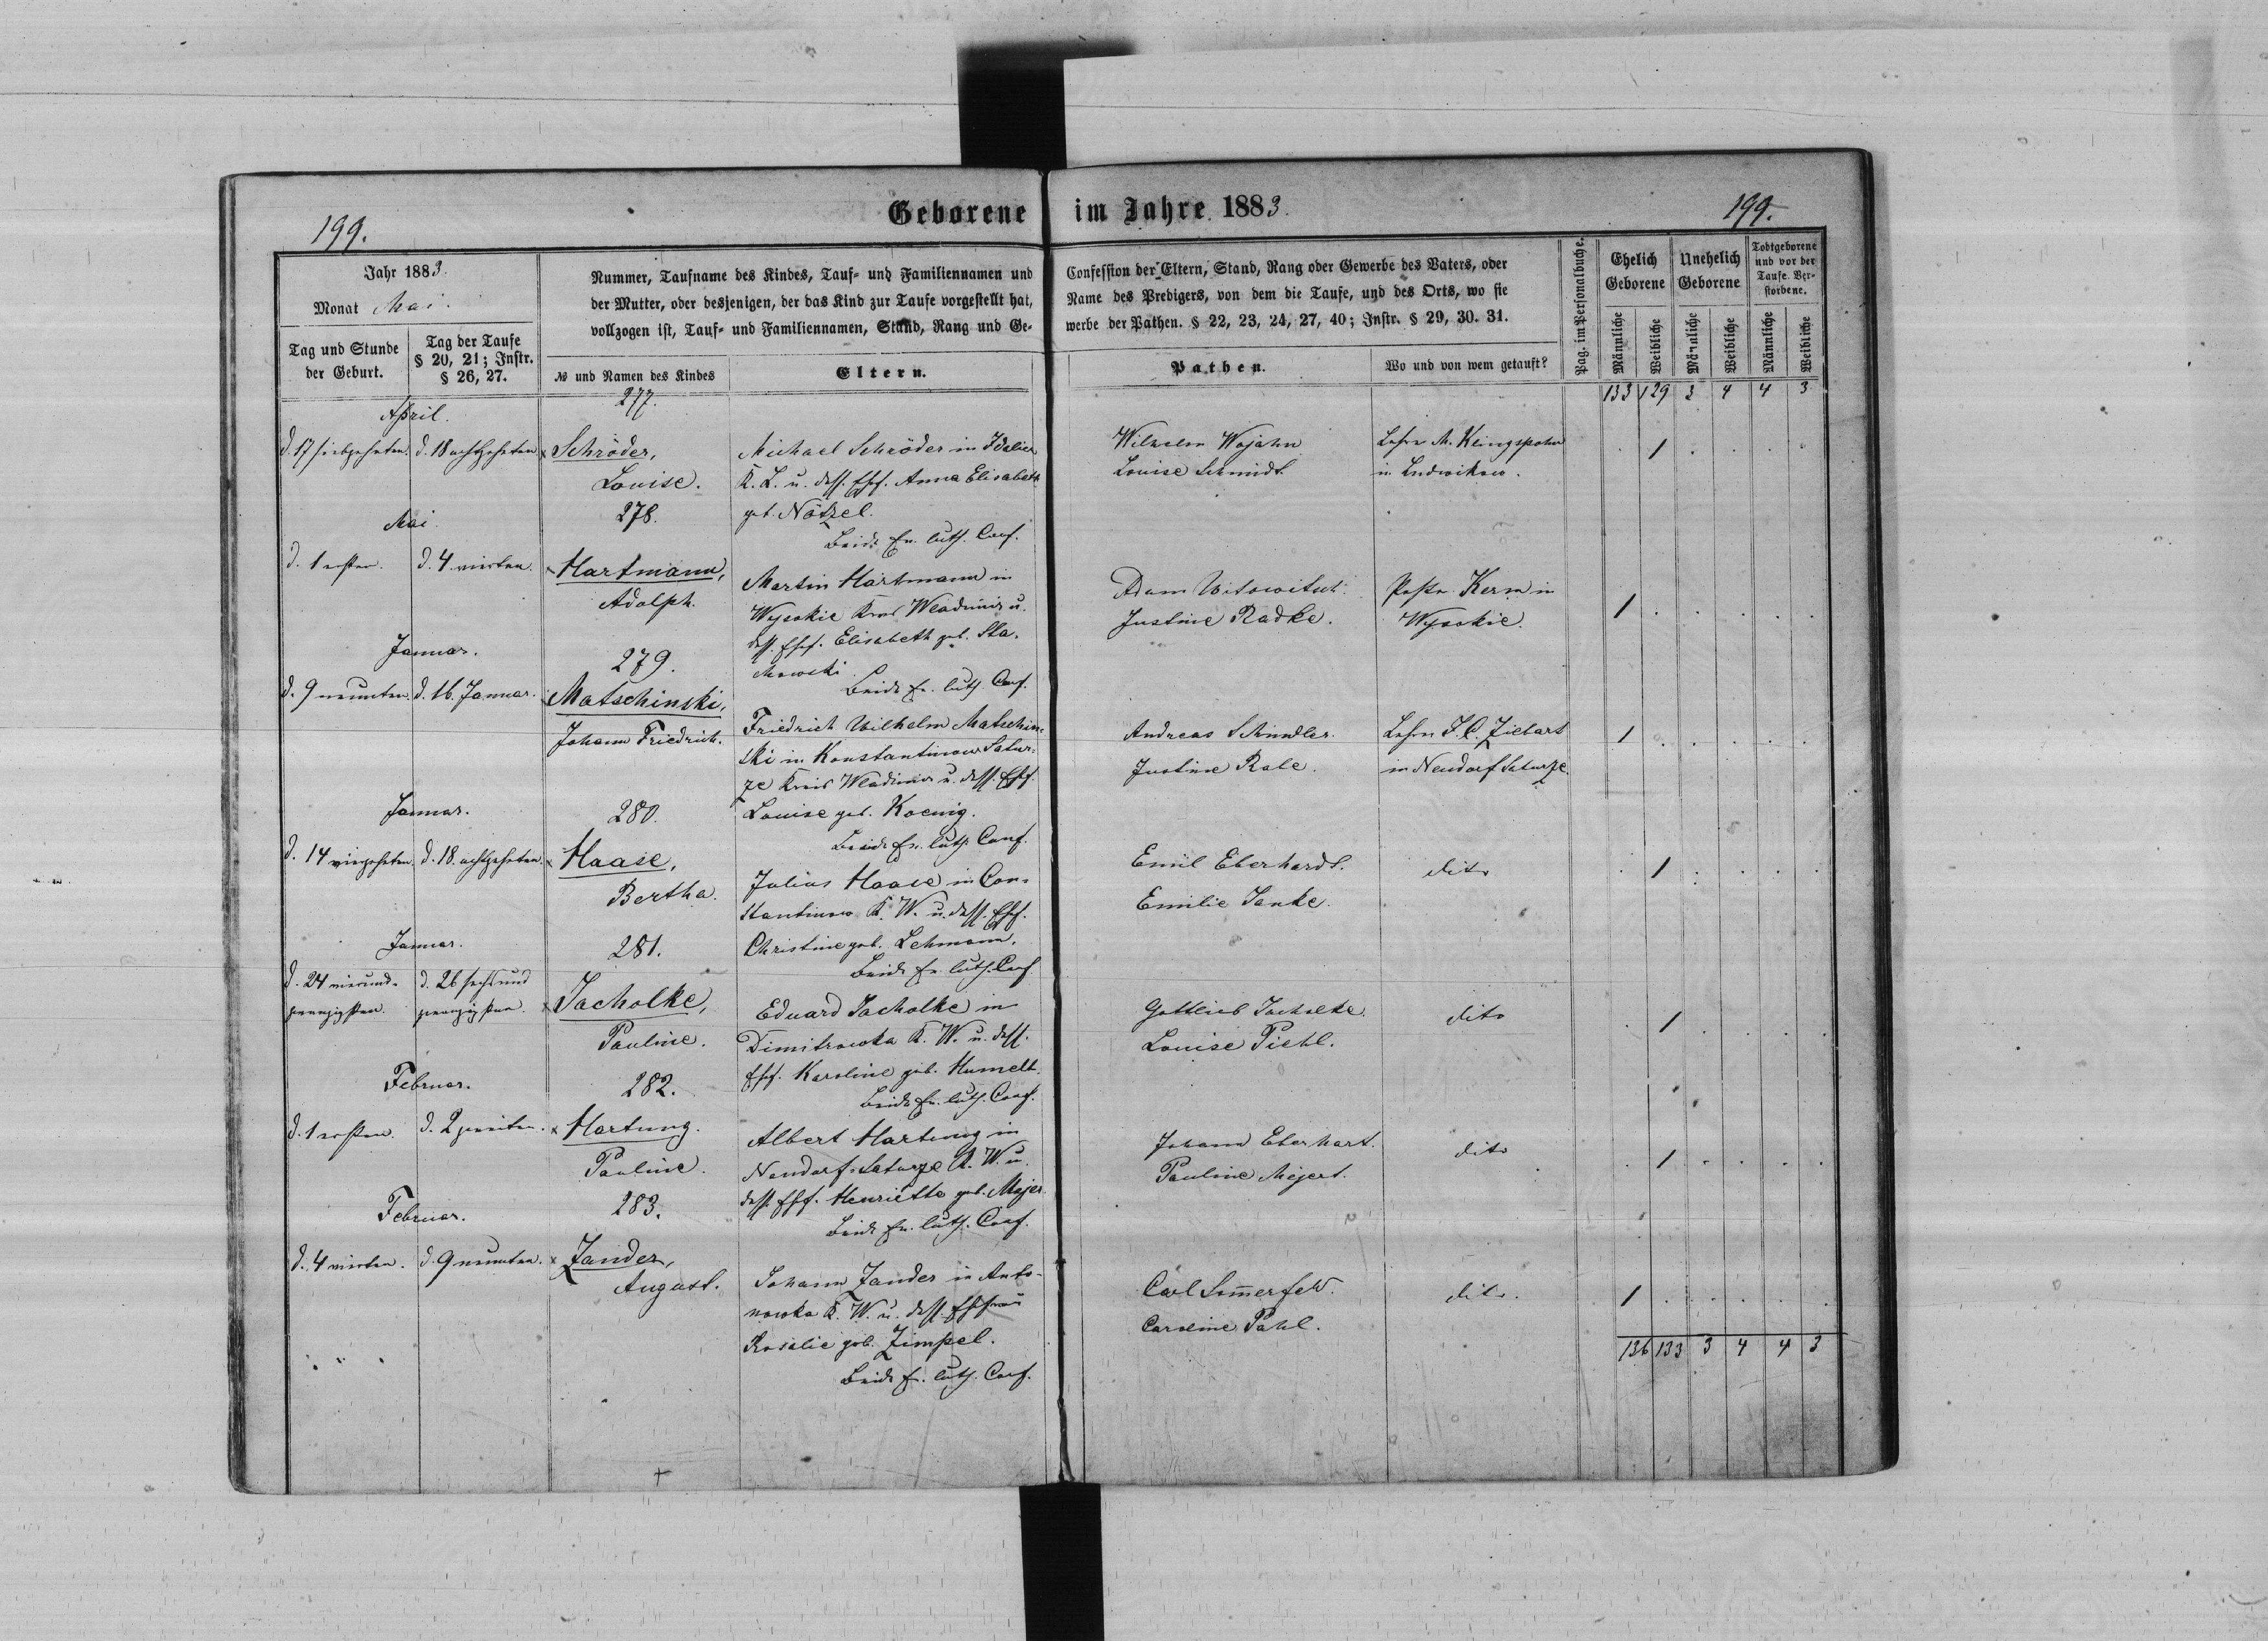 199.
Geborene im Jahre 1883.
199.
Jahr 1883.
Monat Mai.
Tag und Stunde der Geburt.
Tag der Taufe § 20, 21; Instr. § 26, 27.
Nummer, Taufname des Kindes, Tauf- und Familiennamen und
der Mutter, oder desjenigen, der das Kind zur Taufe vorgestellt hat,
vollzogen ist, Tauf- und Familiennamen, Stand, Rang und Ge-
№ und Namen des Kindes
Eltern.
Confession der Eltern, Stand, Rang oder Gewerbe des Vaters, oder
Name des Predigers, von dem die Taufe, und des Orts, wo sie
werbe der Pathen. § 22, 23, 24, 27, 40; Instr. § 29, 30. 31.
Pathen.
Wo und von wem getauft?
Pag. im Personalbuche.
Ehelich Geborene
Unehelich Geborene
Todtgeborene und vor der Taufe Verstorbene.
Männliche
Weibliche
Männliche
Weibliche
Männliche
Weibliche
133 129 3 4 4 3
April.
277.
d. 17 siebzehnten. d. 18 achtzehnten
Schröder,
Louise.
Michael Schröder in Idalien
K. L. u. dess. Ehf. Anna Elisabeth
geb. Nötzel.
Beide Ev. luth. Conf.
Wilhelm Wojahn
Louise Schmidt.
Lehrer M. Klingspohn
in Ludwikow.
1
Mai.
278.
d. 1 ersten. d. 4. vierten.
Hartmann,
Adolph.
Martin Hartmann in
Wysokie Kreis Wladimir u.
dess. Ehf. Elisabeth geb. Sta-
chowski.
Beide Ev. luth. Conf.
Adam Witowitsch.
Justine Radke.
Pastor Kerm in
Wysokie.
1
Januar.
279.
d. 9 neunten. d. 16. Januar.
Matschinski,
Johann Friedrich.
Friedrich Wilhelm Matschin-
ski in Konstantinow Satur-
ze Kreis Wladimir u. dess. Ehf.
Louise geb. Koenig.
Beide Ev. luth. Conf.
Andreas Schindler.
Justine Rale.
Lehrer F. C. Ziebart
in Neudorf Saturze.
1
Januar.
280.
d. 14 vierzehnten. d. 18. achtzehnten.
Haase,
Bertha.
Julius Haase in Con-
stantinow K. W. u. dess. Ehf.
Christine geb. Lehmann.
Beide Ev. luth. Conf.
Emil Eberhardt.
Emilie Janke.
dito
1
Januar.
281.
d. 24 vierund- d. 26 sechsund
zwanzigsten. zwanzigsten.
Jacholke,
Pauline.
Eduard Jacholke in
Dimitrowka K. W. u. dess.
Ehf. Karoline geb. Humelt.
Beide Ev. luth. Conf.
Gottlieb Jacholke.
Louise Piehl.
dito
1
Februar.
282.
d. 1 ersten. d. 2 zweiten.
Hartung.
Pauline.
Albert Hartung in
Neudorf-Saturze K. W. u.
dess. Ehf. Henriette geb. Mejer
Beide Ev. luth. Conf.
Johann Eberhart.
Pauline Mejert.
dito
1
Februar.
283.
d. 4 vierten. d. 9 neunten.
Zander,
August.
Johann Zander in Anto-
nowka K. W. u. dess. Ehefrau
Rosalie geb. Zimpel.
Beide Ev. luth. Conf.
Carl Sommerfeld.
Caroline Pahl.
dito.
1
136 133 3 4 4 3